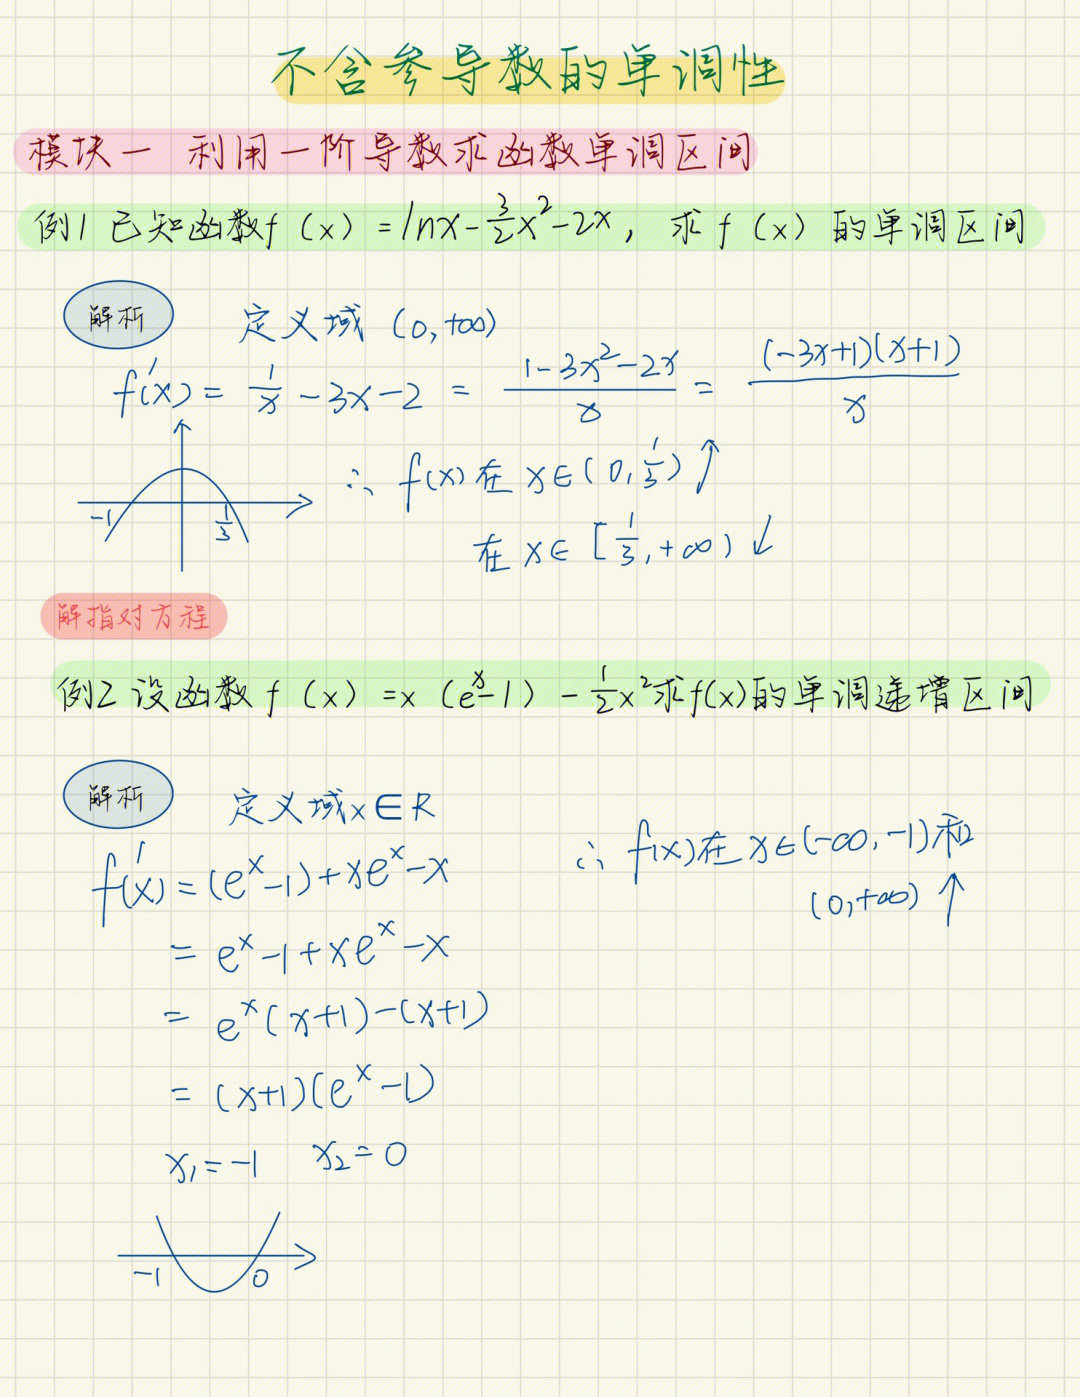 不含参导数的单调性
模块一 利用一阶导数求函数单调区间
例1 已知函数f（x）=lnx-3/2x²-2x，求f（x）的单调区间
解析
定义域 (0,+∞)
f'(x) = 1/x -3x-2 = (1-3x²-2x)/x = (-3x+1)(x+1)/x
-1 1/3
∴ f(x)在 x∈(0,1/3)↑
在 x∈[1/3,+∞)↓
解指对方程
例2 设函数f（x）=x（eˣ-1）-1/2x²求f(x)的单调递增区间
解析
定义域x∈R
f'(x)=(eˣ-1)+xeˣ-x
= eˣ-1+xeˣ-x
= eˣ(x+1)-(x+1)
= (x+1)(eˣ-1)
x₁=-1 x₂=0
-1 0
∴ f(x)在 x∈(-∞,-1)和
(0,+∞)↑